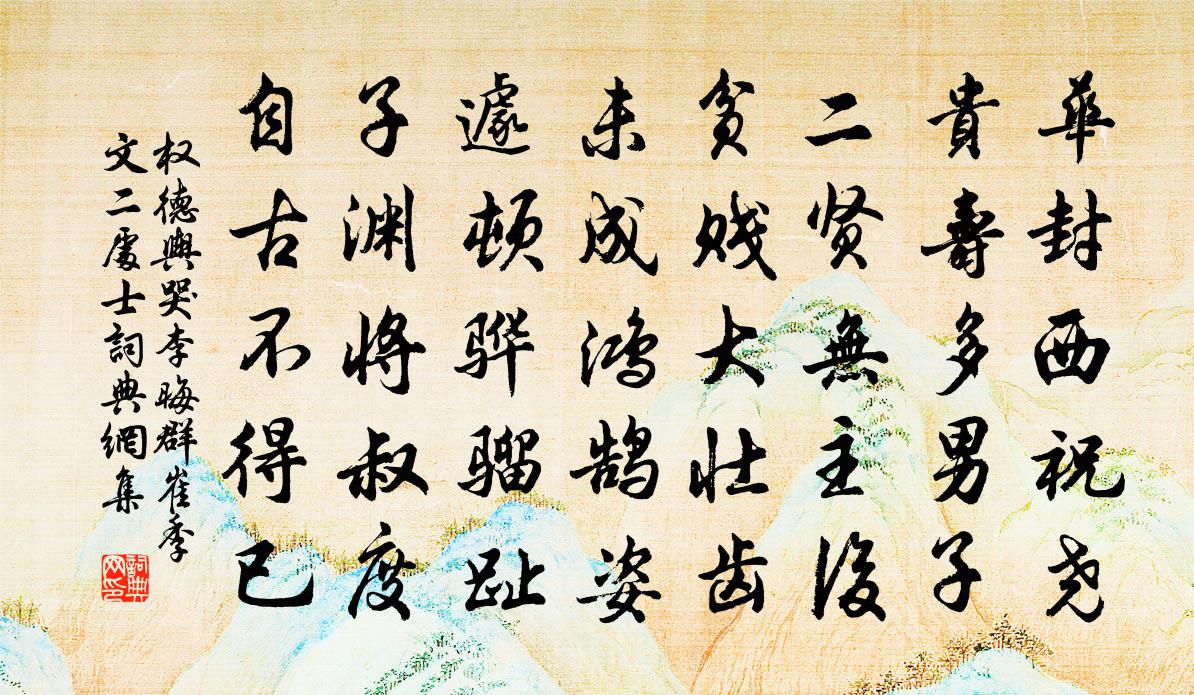 華封西祝尧
貴壽多男子
二贤無主後
贫贱大壮齿
未成鸿鹄姿
遽顿骅骝趾
子渊将叔度
自古不得已
权德輿哭李晦群崔季
文二處士詞典網集
詞典网印